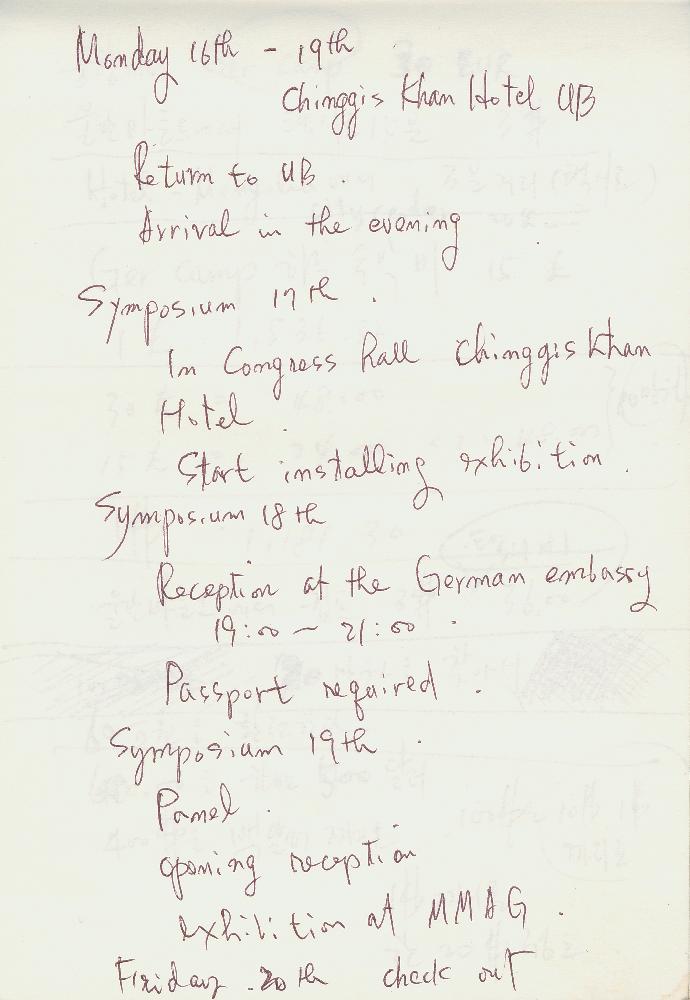 Monday 16th - 19th
Chinggis Khan Hotel UB
Return to UB.
Arrival in the evening
Symposium 17th.
In Congress hall Chinggis Khan
Hotel.
Start installing exhibition.
Symposium 18th
Reception at the German embassy
19:00 ~ 21:00.
Passport required.
Symposium 19th.
Panel.
opening reception
exhibition at MMAG.
Friday. 20th check out